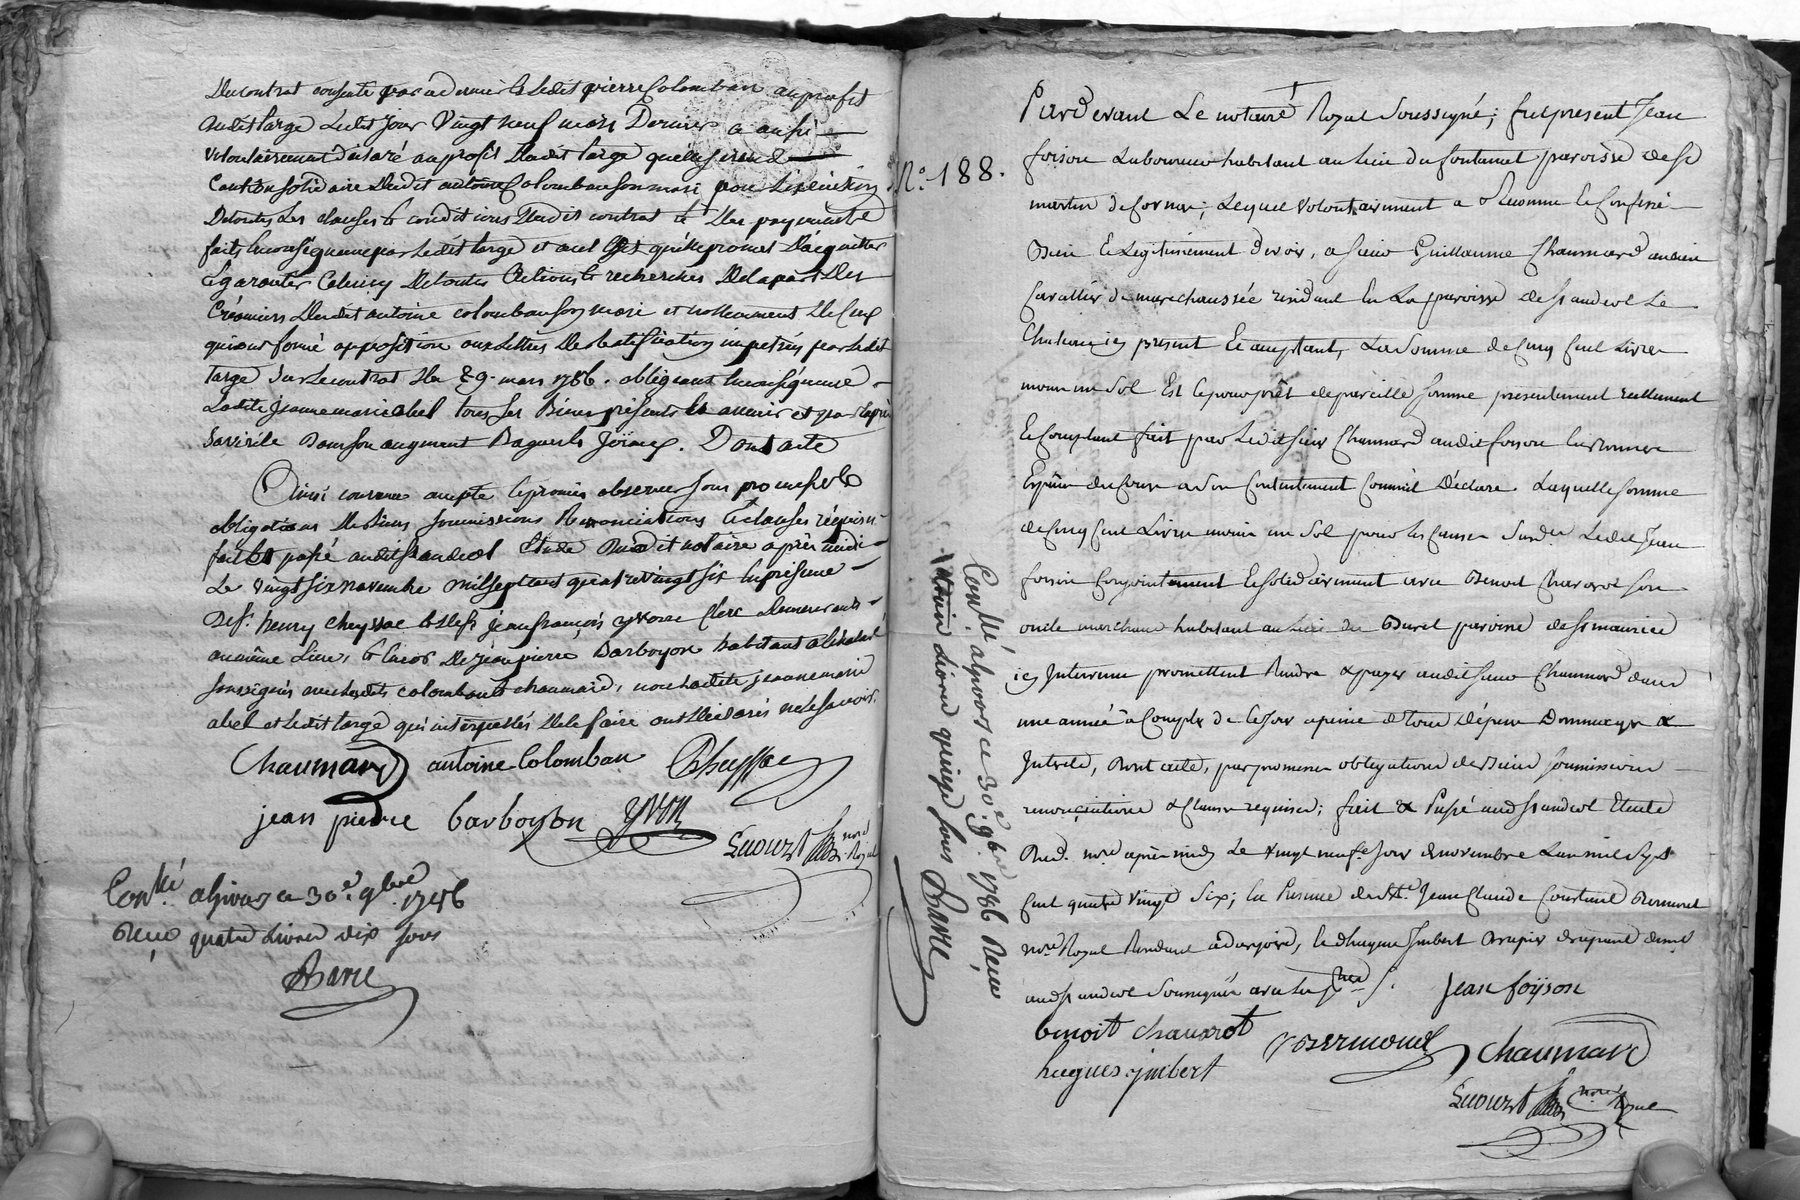 Du contrat consenti par ce dernier & ledit pierre Colomban au profit
dudit largé ledit Jour Vingt neuf mars Dernier a aussi
volontairement déclaré au profit dudit largé quelle se rend
Caution solidaire dudit antoine Colomban son mari pour l'exécution
De toutes les clauses & conditions dudit contrat & des payements
faits en conséquence par ledit largé et quelle promet d'acquitter
& garantir celuicy de toutes actions & recherches de la part des
Créanciers dudit antoine colomban son mari et nottamment de ceux
qui ont formé opposition aux lettres de Ratification impetrées par ledit
largé sur le contrat du 29. mars 1786. obligeant en conséquence
Ladite Jeanne marie abel tous ses Biens présents & avenir et par exprès
augment Bagues & Joïaux. Dont acte
Ainsi convenu accepté & promis observer sous promesses
obligations de Biens soumissions Renonciations & clauses requises
fait & passé audit st andeol Etude dudit notaire après midi
Le vingt six novembre mil sept cent quatre vingt six en présence
De sr. henry cheyssac & de sr jean françois yvon clerc demeurants
au même lieu, & encor de jean pierre Barboyon habitant
soussignés avec lesdits colomban & chaumard, non ladite jeanne marie
abel et ledit largé qui interpellés de le faire ont déclarés ne le savoir.
Chaumard antoine Colomban Cheyssac
jean pierre barboyon YVON
nore Royal
Conllé a givors ce 30e. 9bre. 1786
Reçu quatre Livres dix sous
Barré
N.° 188.
Conllé. a givors ce 30e. 9bre. 1786 Reçu
Livres quinze sous Barré
Pardevant Le notaire Royal Soussigné; fut present Jean
foison Laboureur habitant au lieu du fontanet parroisse de st
martin de Cornas; Lequel volontairement a Reconnu & Confessé
Bien & Legitimement devoir, a sieur Guillaume Chaumard ancien
Cavallier de marechaussée residant En La parroisse de st andeol Le
Chateau icy present & acceptant, La Somme de Cinq Cent Livres
moins un Sol Et ce pour prêt de pareille somme presentement reellement
& Comptant fait par Ledit sieur Chaumard audit foison
En espèces de Cours a Son Contentement Comme il Déclare. Laquelle somme
de Cinq Cent Livres moins un Sol pour les Causes Susd.es Ledit Jean
foison Conjointement & solidairement avec Benoit Chavarot son
oncle marchand habitant au Lieu du Burel parroisse de st maurice
icy Intervenu promettent Rendre & payer audit sieur Chaumard dans
une année à Compter de Ce Jour a peine de tous Dépens Dommages &
Interets, Dont acte, par promesses obligations de Biens soumissions
renonciations & Clauses requises; fait & Passé audit st andeol Etude
Dud. nore après midy Le vingt neuf.e Jour de novembre L'an mil Sept
Cent quatre vingt Six; En Presence de Me. Jean Claude Coustant Bermond
nore Royal Residant a dargoire, & d'hugues Imbert
aud st andeol Soussignés avec Les
Jean foÿson
benoit chavarot
BERMOND Chaumard
hugues jmbert
nore Royal